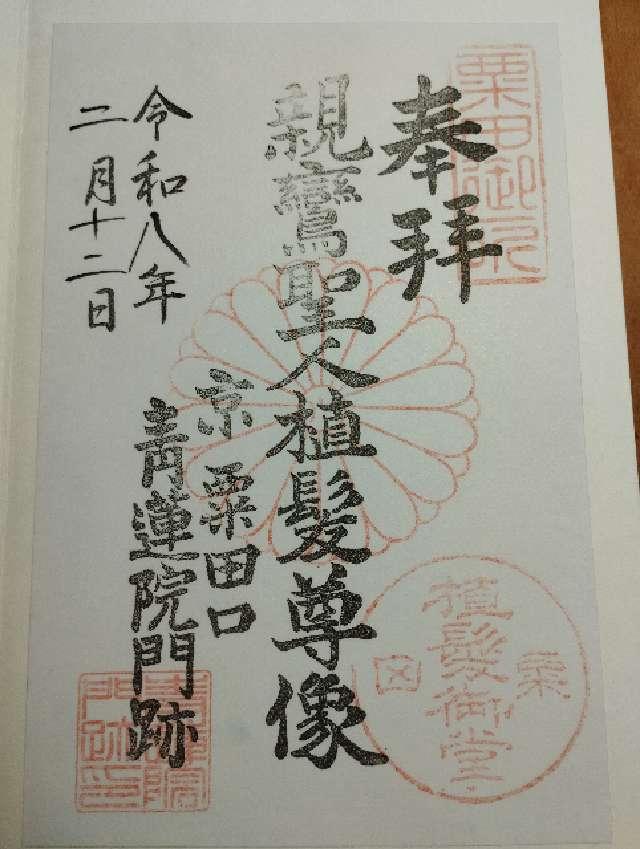 奉拝
親鸞聖人植髪尊像
京粟田口
青蓮院門跡
令和八年
二月十二日
粟田御所
植髪御堂
粟田
青蓮院門跡印